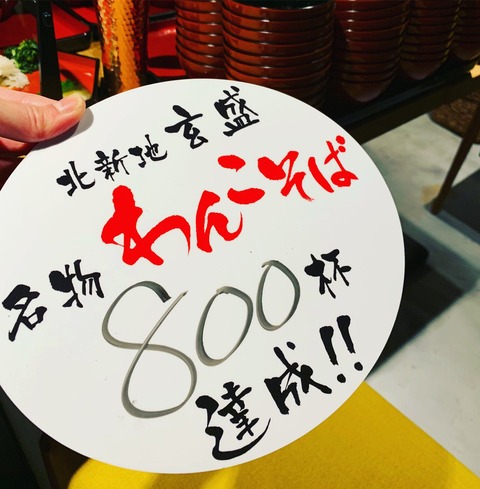 北新地 玄盛
わんこそば
名物 800杯
達成!!